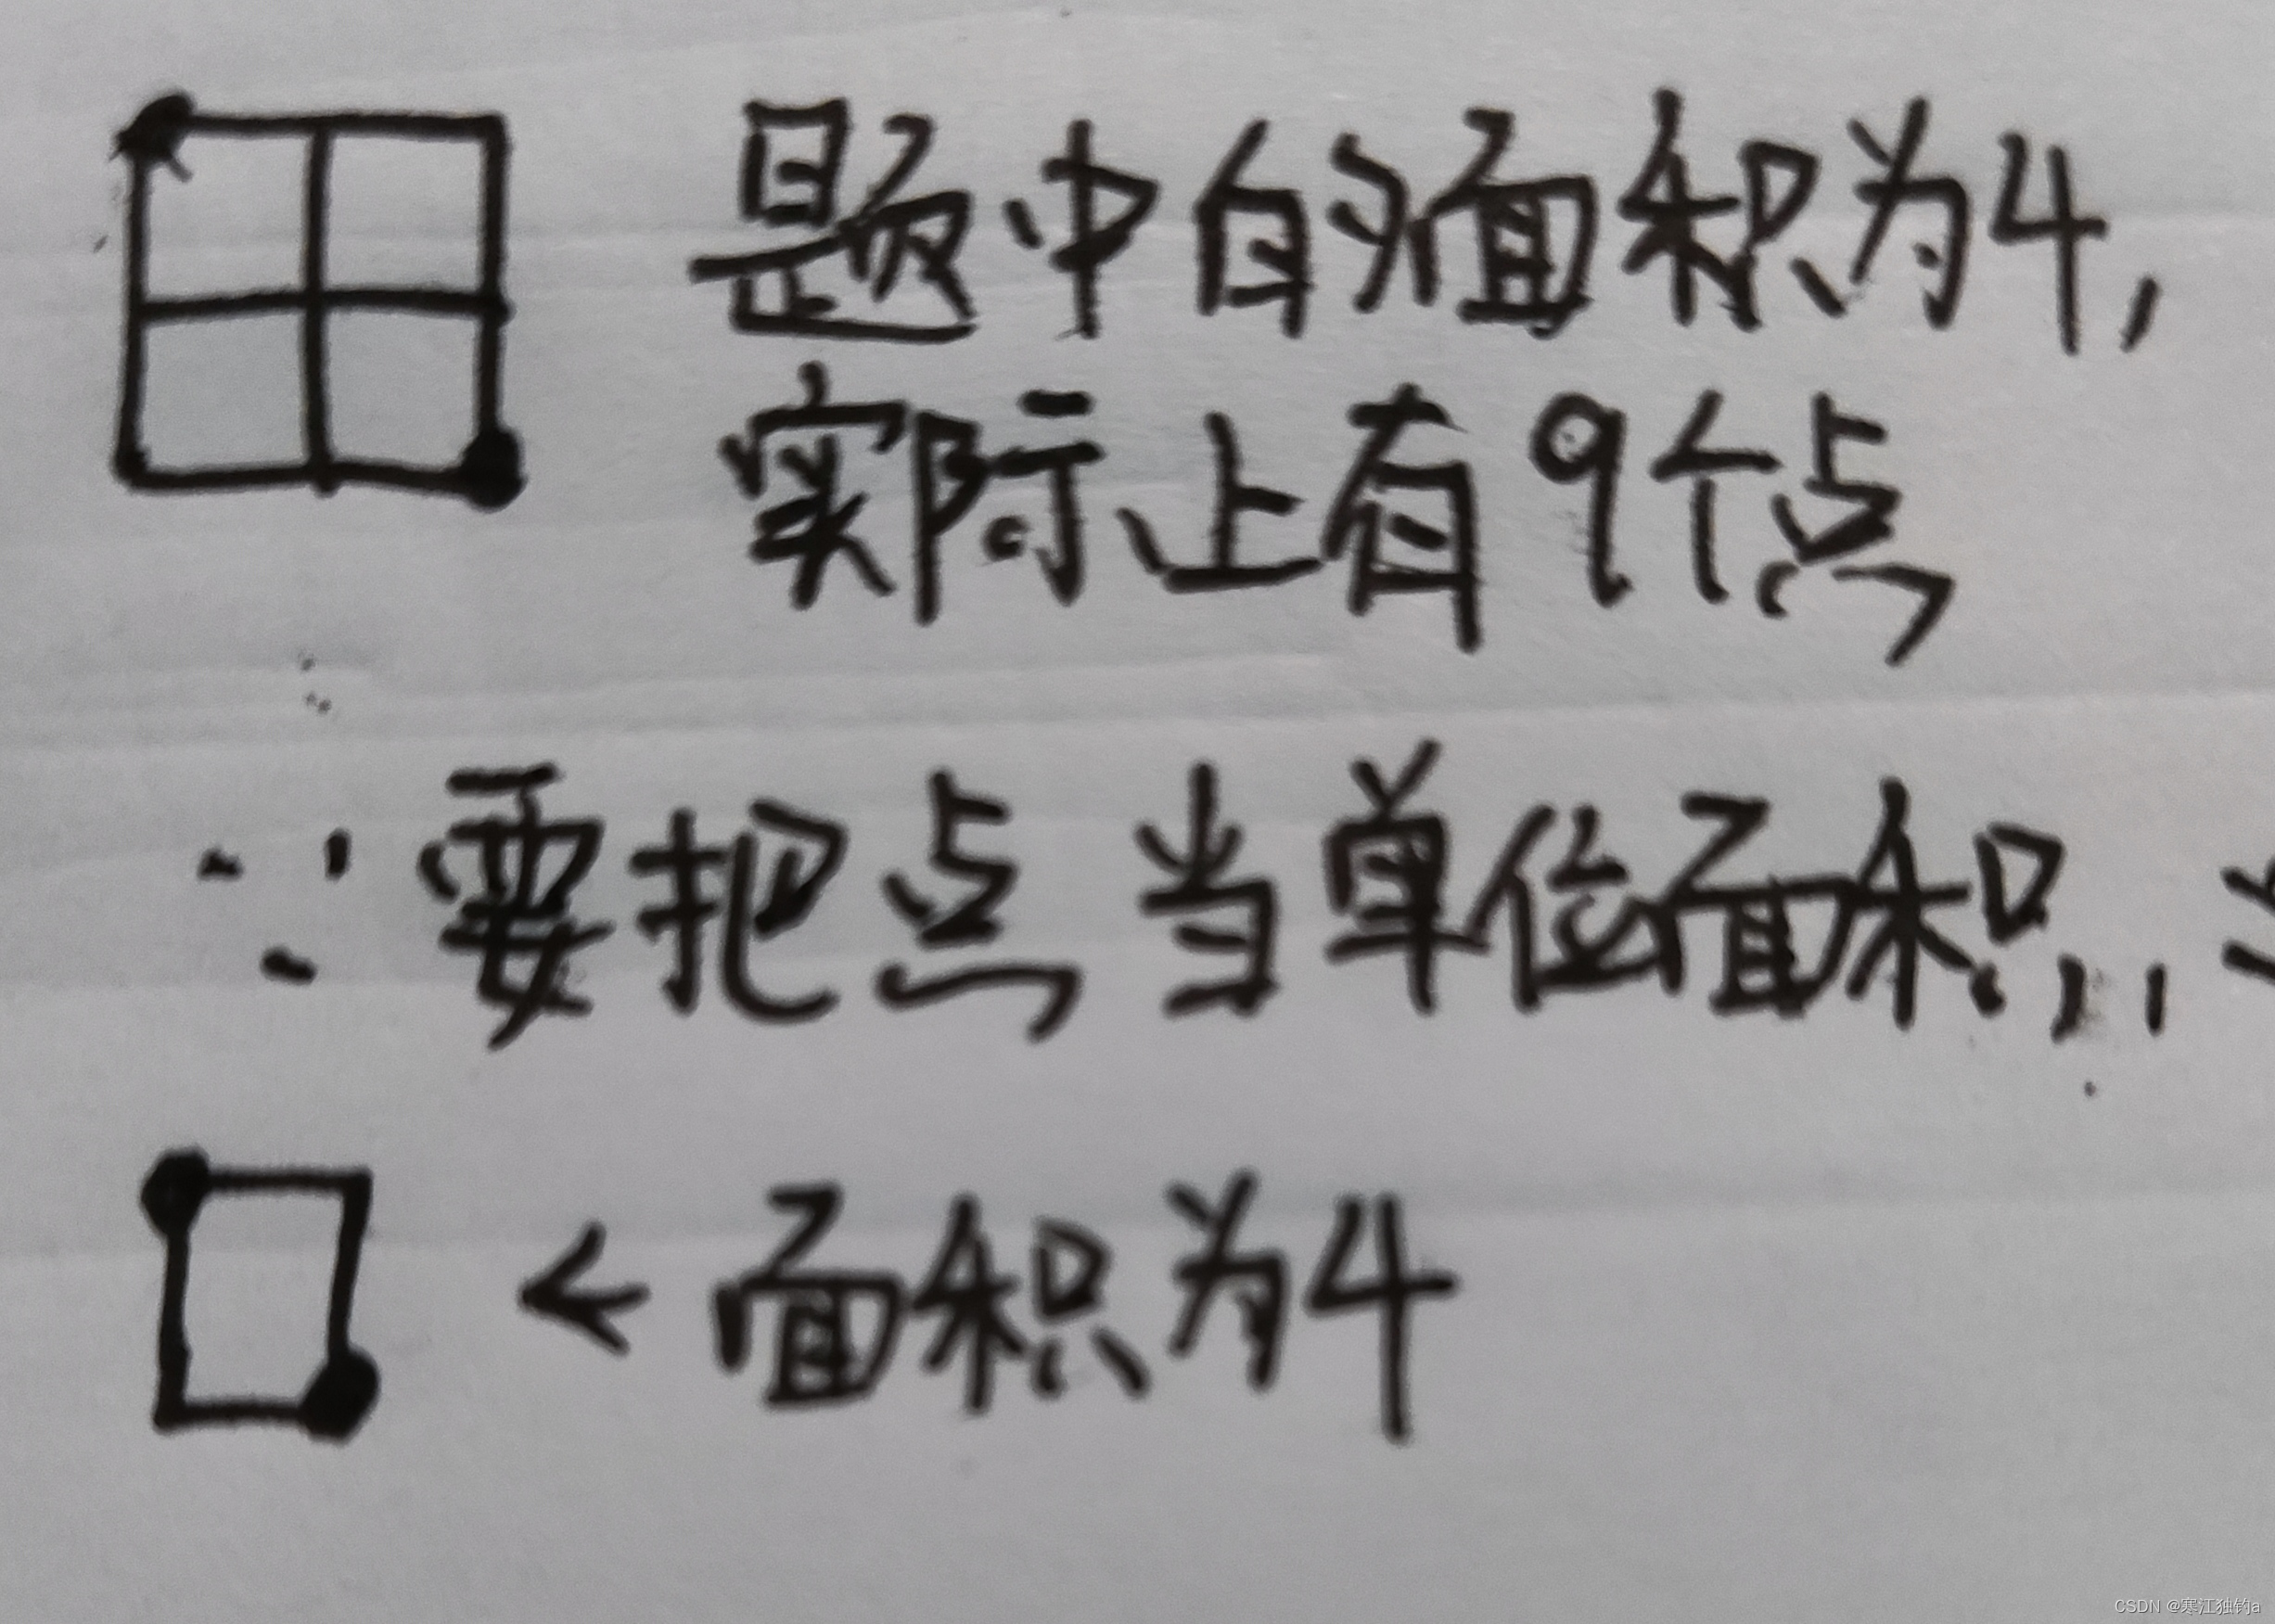 题中的面积为4,
实际上有9个点
∵要把点当单位面积,
←面积为4
CSDN @寒江独钓a